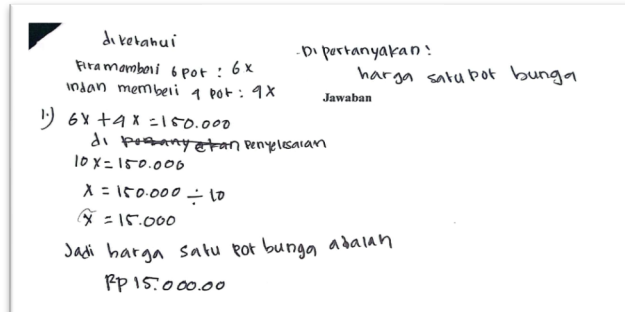 diketahui
Fira membeli 6 pot : 6x
Indan membeli 4 pot : 4x
Dipertanyakan :
harga satu pot bunga
Jawaban
1.) 6x + 4x = 150.000
di penyelesaian
10x = 150.000
x = 150.000 ÷ 10
x = 15.000
Jadi harga satu pot bunga adalah
Rp 15.000.00